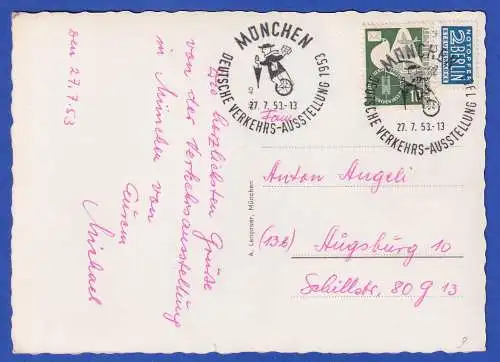 den 27.7.53
Die herzlichsten Grüße
von der Verkehrsausstellung
in München von
Eurem
Michael
MÜNCHEN
DEUTSCHE VERKEHRS-AUSSTELLUNG 1953
27. 7. 53.-13
MÜNCHEN
DEUTSCHE VERKEHRS-AUSSTELLUNG 195
27. 7. 53.-13
10
NOTOPFER
2 BERLIN
STEUERMARKE
Fam.
Anton Angeli
(13b) Augsburg 10
Schillstr. 80 g 13
A. Lengauer, München